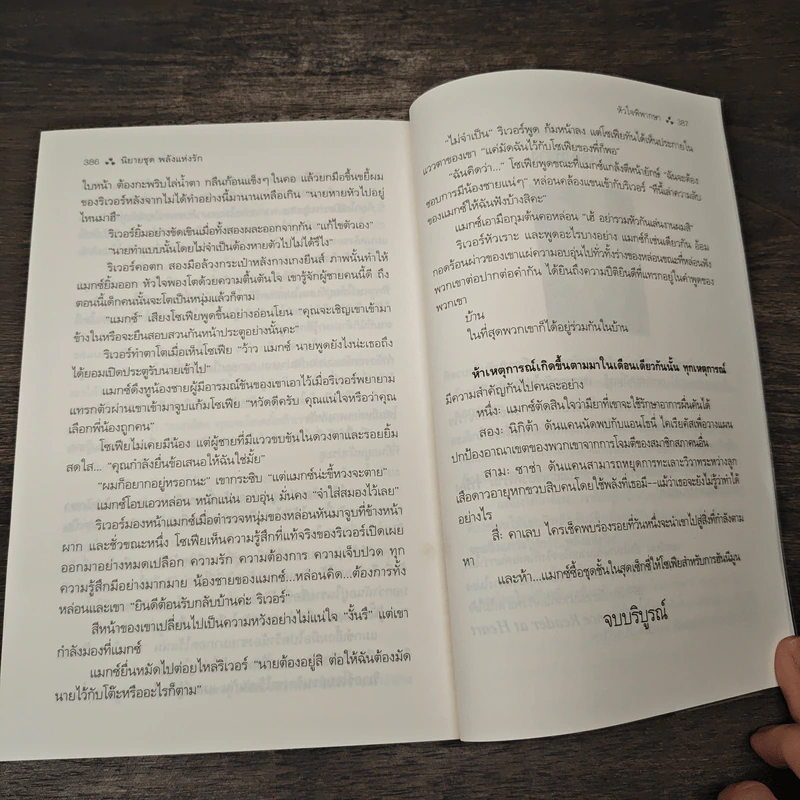 386 นิยายชุด พลังแห่งรัก
ใบหน้า ต้องกะพริบไล่น้ำตา กลืนก้อนแข็งๆ ในคอ แล้วยกมือขึ้นขยี้ผม
ของริเวอร์หลังจากไม่ได้ทำอย่างนี้มานานเหลือเกิน "นายหายหัวไปอยู่
ไหนมาฮึ"
ริเวอร์ยิ้มอย่างขัดเขินเมื่อทั้งสองผละออกจากกัน "แก้ไขตัวเอง"
"นายทำแบบนั้นโดยไม่จำเป็นต้องหายตัวไปไม่ได้รึไง"
ริเวอร์คอตก สองมือล้วงกระเป๋าหลังกางเกงยีนส์ ภาพนั้นทำให้
แมกซ์ยิ้มออก หัวใจพองโตด้วยความตื้นตันใจ เขารู้จักผู้ชายคนนี้ดี ถึง
ตอนนี้เด็กคนนั้นจะโตเป็นหนุ่มแล้วก็ตาม
"แมกซ์" เสียงโซเฟียพูดขึ้นอย่างอ่อนโยน "คุณจะเชิญเขาเข้ามา
ข้างในหรือจะยืนสอบสวนกันหน้าประตูอย่างนั้นคะ"
ริเวอร์ทำตาโตเมื่อเห็นโซเฟีย "ว้าว แมกซ์ นายพูดยังไงน่ะเธอถึง
ได้ยอมเปิดประตูรับนายเข้าไป"
แมกซ์ดึงหูน้องชายผู้มีอารมณ์ขันของเขาเอาไว้เมื่อริเวอร์พยายาม
แทรกตัวผ่านเขาเข้ามาจูบแก้มโซเฟีย "หวัดดีครับ คุณแน่ใจหรือว่าคุณ
เลือกพี่น้องถูกคน"
โซเฟียไม่เคยมีน้อง แต่ผู้ชายที่มีแววขบขันในดวงตาและรอยยิ้ม
สดใส... "คุณกำลังยื่นข้อเสนอให้ฉันใช่มั้ย"
"ผมก็อยากอยู่หรอกนะ" เขากระซิบ "แต่แมกซ์น่ะขี้หวงจะตาย"
แมกซ์โอบเอวหล่อน หนักแน่น อบอุ่น มั่นคง "จำใส่สมองไว้เลย"
ริเวอร์มองหน้าแมกซ์เมื่อตำรวจหนุ่มของหล่อนหันมาจูบที่ข้างหน้า
ผาก และชั่วขณะหนึ่ง โซเฟียเห็นความรู้สึกที่แท้จริงของริเวอร์เปิดเผย
ออกมาอย่างหมดเปลือก ความรัก ความต้องการ ความเจ็บปวด ทุก
ความรู้สึกมีอย่างมากมาย น้องชายของแมกซ์...หล่อนคิด...ต้องการทั้ง
หล่อนและเขา "ยินดีต้อนรับกลับบ้านค่ะ ริเวอร์"
สีหน้าของเขาเปลี่ยนไปเป็นความหวังอย่างไม่แน่ใจ "งั้นรึ" แต่เขา
กำลังมองที่แมกซ์
แมกซ์ยื่นหมัดไปต่อยไหล่ริเวอร์ "นายต้องอยู่สิ ต่อให้ฉันต้องมัด
นายไว้กับโต๊ะหรืออะไรก็ตาม"
หัวใจพิพากษา 387
"ไม่จำเป็น" ริเวอร์พูด ก้มหน้าลง แต่โซเฟียทันได้เห็นประกายใน
แววตาของเขา "แค่มัดฉันไว้กับโซเฟียของพี่ก็พอ"
"ฉันคิดว่า..." โซเฟียพูดขณะที่แมกซ์แกล้งตีหน้ายักษ์ "ฉันจะต้อง
ชอบการมีน้องชายแน่ๆ" หล่อนคล้องแขนเข้ากับริเวอร์ "ทีนี้เล่าความลับ
ของแมกซ์ให้ฉันฟังบ้างสิคะ"
แมกซ์เอามือกุมต้นคอหล่อน "เฮ้ อย่ารวมหัวกันเล่นงานผมสิ"
ริเวอร์หัวเราะ และพูดอะไรบางอย่าง แมกซ์ก็เช่นเดียวกัน อ้อม
กอดร้อนผ่าวของเขาแผ่ความอบอุ่นไปทั่วทั้งร่างของหล่อนขณะที่หล่อนฟัง
พวกเขาต่อปากต่อคำกัน ได้ยินถึงความปีติยินดีที่แทรกอยู่ในคำพูดของ
พวกเขา
บ้าน
ในที่สุดพวกเขาก็ได้อยู่ร่วมกันในบ้าน
ห้าเหตุการณ์เกิดขึ้นตามมาในเดือนเดียวกันนั้น ทุกเหตุการณ์
มีความสำคัญกันไปคนละอย่าง
หนึ่ง: แมกซ์ตัดสินใจว่ามียาที่เขาจะใช้รักษาอาการผื่นคันได้
สอง: นิกิต้า ดันแคนนัดพบกับแอนโธนี่ ไคเรียคัสเพื่อวางแผน
ปกป้องอาณาเขตของพวกเขาจากการโจมตีของสมาชิกสภาคนอื่น
สาม: ซาช่า ดันแคนสามารถหยุดการทะเลาะวิวาทระหว่างลูก
เสือดาวอายุหกขวบสิบคนโดยใช้พลังที่เธอมี--แม้ว่าเธอจะยังไม่รู้ว่าทำได้
อย่างไร
สี่: คาเลบ ไครเช็คพบร่องรอยที่วันหนึ่งจะนำเขาไปสู่สิ่งที่กำลังตาม
หา
และห้า...แมกซ์ซื้อชุดชั้นในสุดเซ็กซี่ให้โซเฟียสำหรับการฮันนีมูน
จบบริบูรณ์